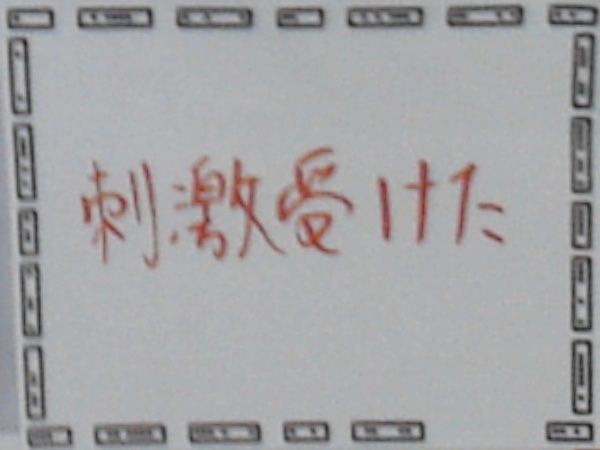 刺激受けた